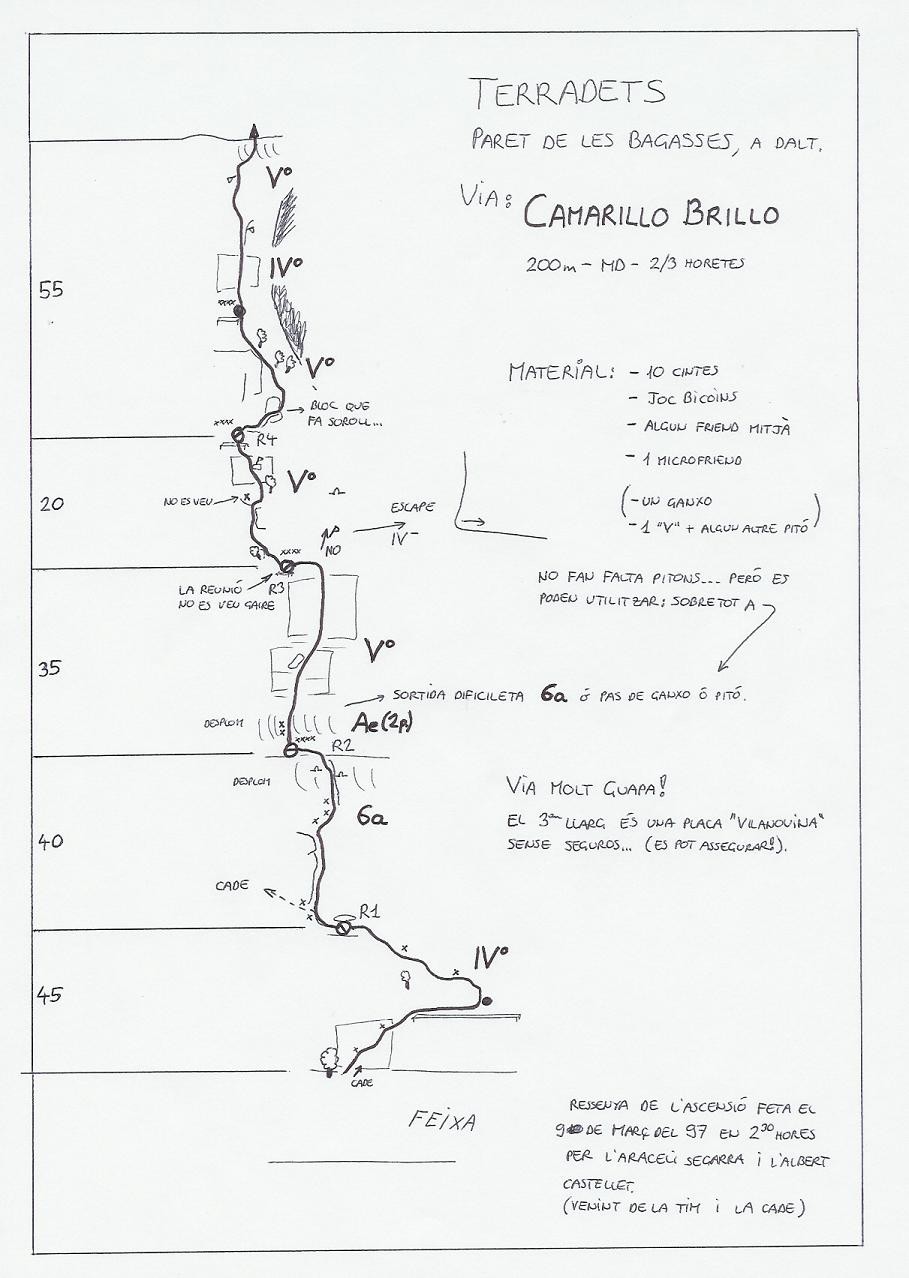 TERRADETS
PARET DE LES BAGASSES, A DALT.
VIA: CAMARILLO BRILLO
200m - MD - 2/3 HORETES
MATERIAL: - 10 CINTES
- JOC BICOINS
- ALGUN FRIEND MITJÀ
- 1 MICROFRIEND
(- UN GANXO
- 1 "V" + ALGUN ALTRE PITÓ)
NO FAN FALTA PITONS... PERÒ ES
PODEN UTILITZAR; SOBRETOT A
SORTIDA DIFICILETA 6a ó PAS DE GANXO Ó PITÓ.
VIA MOLT GUAPA!
EL 3er LLARG ÉS UNA PLACA "VILANOVINA"
SENSE SEGUROS... (ES POT ASSEGURAR!).
Vº
IVº
55
xxxx
Vº
BLOC QUE
FA SOROLL...
xxxx
R4
Vº
NO ES VEU
20
ESCAPE
IV-
NO
xxxx
LA REUNIÓ
NO ES VEU GAIRE
R3
Vº
35
DESPLOM
Ae(2p)
xxxx
R2
DESPLOM
6a
40
CADE
R1
IVº
45
CADE
FEIXA
RESSENYA DE L'ASCENSIÓ FETA EL
9 DE MARÇ DEL 97 EN 2³⁰ HORES
PER L'ARACELI SEGARRA I L'ALBERT
CASTELLET.
(VENINT DE LA TIM I LA CADE)